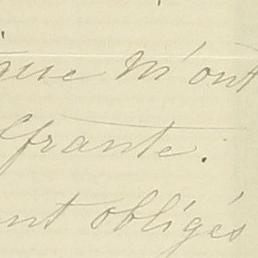 que m'ont
ffrante.
nt obligés